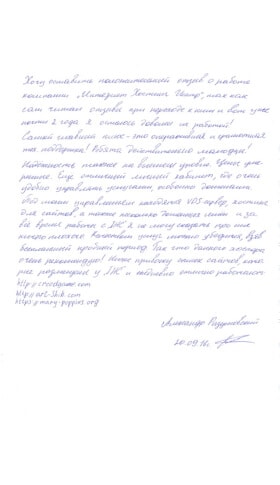 Хочу оставить положительный отзыв о работе
компании "Интернет Хостинг Центр", так как
сам читал отзывы при переходе к ним и вот уже
почти 2 года я остаюсь доволен их работой!
Самый главный плюс - это оперативная и грамотная
тех. поддержка! Ребята действительно молодцы!
Надежность также на высшем уровне. Цены
Еще отличный личный кабинет, где очень
удобно управлять услугами, особенно доменами
под моим управлением находятся VDS сервер, хостинг
для сайтов, а также несколько доменных имен и за
всё время работы с ХЦ я не могу сказать про них
ничего плохого. Качеством услуг можно убедиться, взяв
бесплатный пробный период. Так что данного хостера
очень рекомендую! Ниже привожу список сайтов, кото-
рые размещены у ХЦ и стабильно отлично работают:
http://
http://art-
https://many-puppies.org
Александр
20.09.16г.